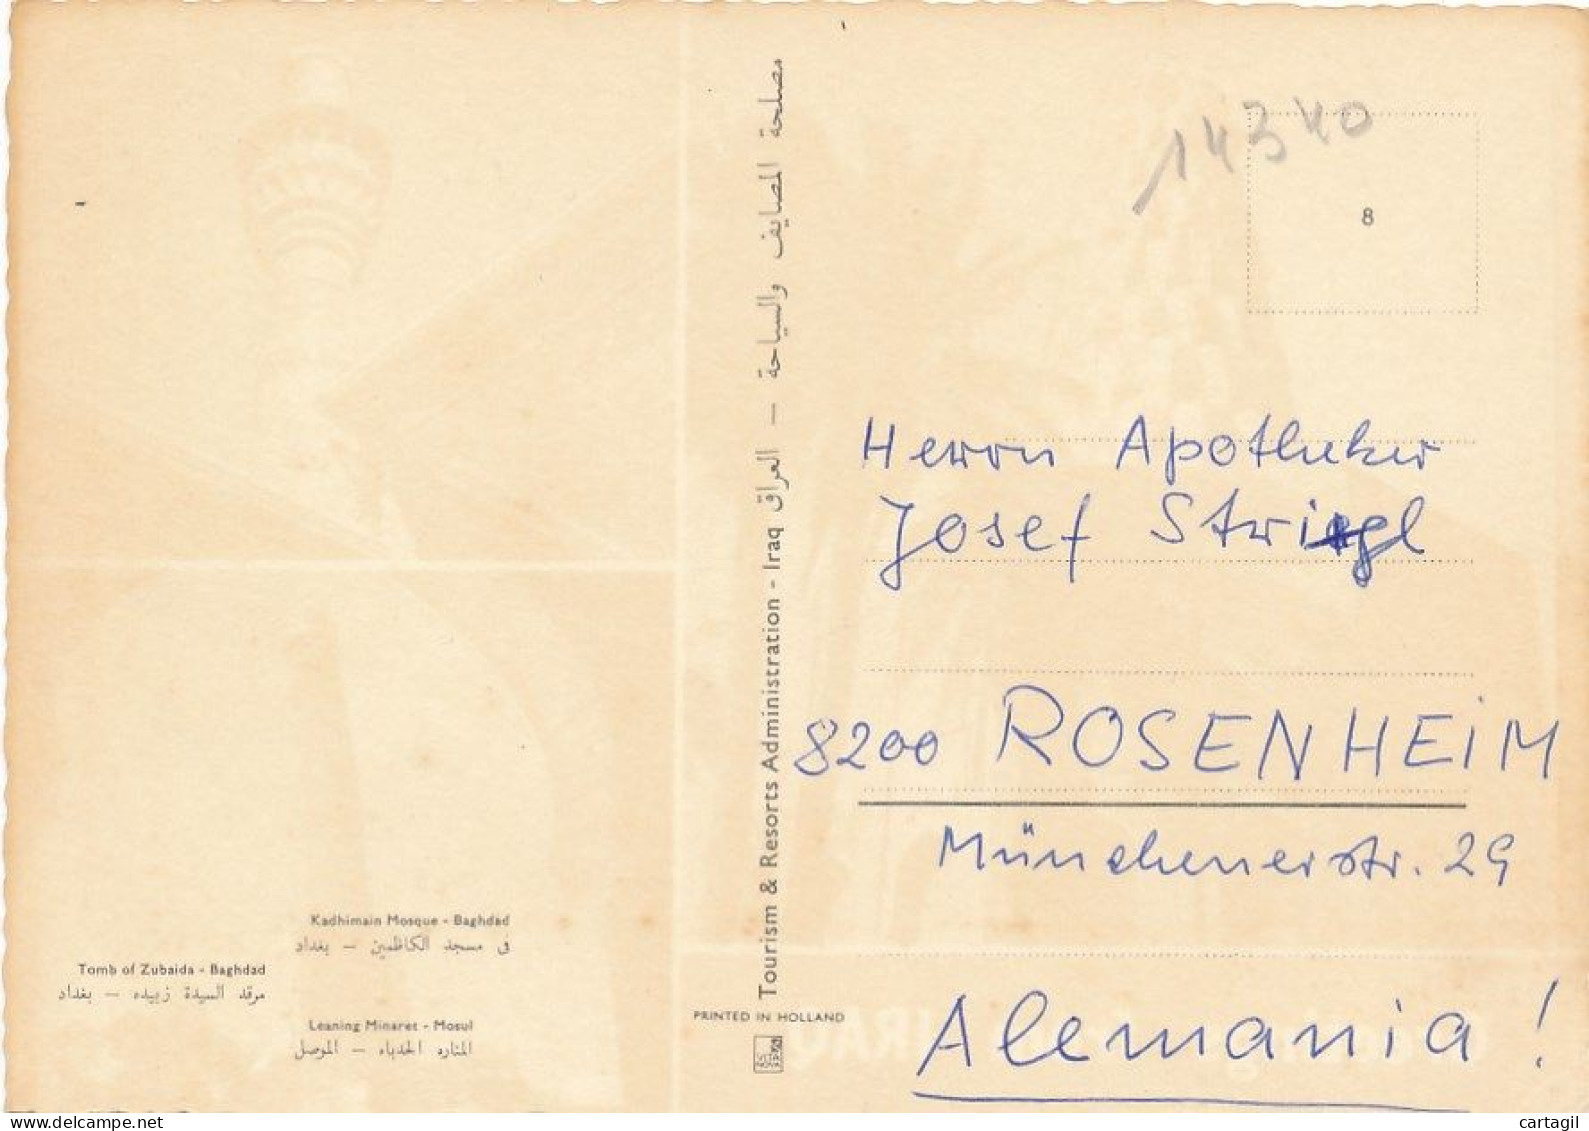 14340
8
Herrn Apotheker
Josef Striegl
8200 ROSENHEIM
Münchenerstr. 29
Alemania!
Tourism & Resorts Administration - Iraq مصلحة المصايف والسياحة — العراق
Kadhimain Mosque - Baghdad
فى مسجد الكاظمين — بغداد
Tomb of Zubaida - Baghdad
مرقد السيدة زبيده — بغداد
Leaning Minaret - Mosul
المناره الحدباء — الموصل
PRINTED IN HOLLAND
VITA
NOVA
IRAQ
www.delcampe.net
cartagil